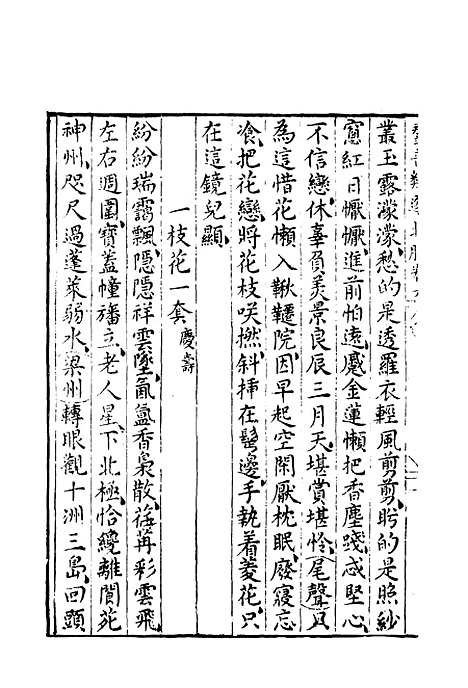 叢玉露濛濛愁的是透羅衣輕風剪剪盻的是照紗
窻紅日懨懨進前怕遠蹙金蓮懶把香塵踐感堅心
不信戀休辜負美景良辰三月天堪賞堪怜尾聲且
為這惜花懶入鞦韆院因早起空閑厭枕眠廢寢忘
飡把花戀將花枝咲撚斜挿在髩邊手執着菱花只
在這鏡兒顯
一枝花一套慶壽
紛紛瑞靄飄隱隱祥雲墜氤氳香裊散苒彩雲飛
左右週圍寶蓋幢旛立老人星下北極恰纔離閬苑
神州咫尺過蓬萊弱水梁州轉眼觀十洲三島回頭